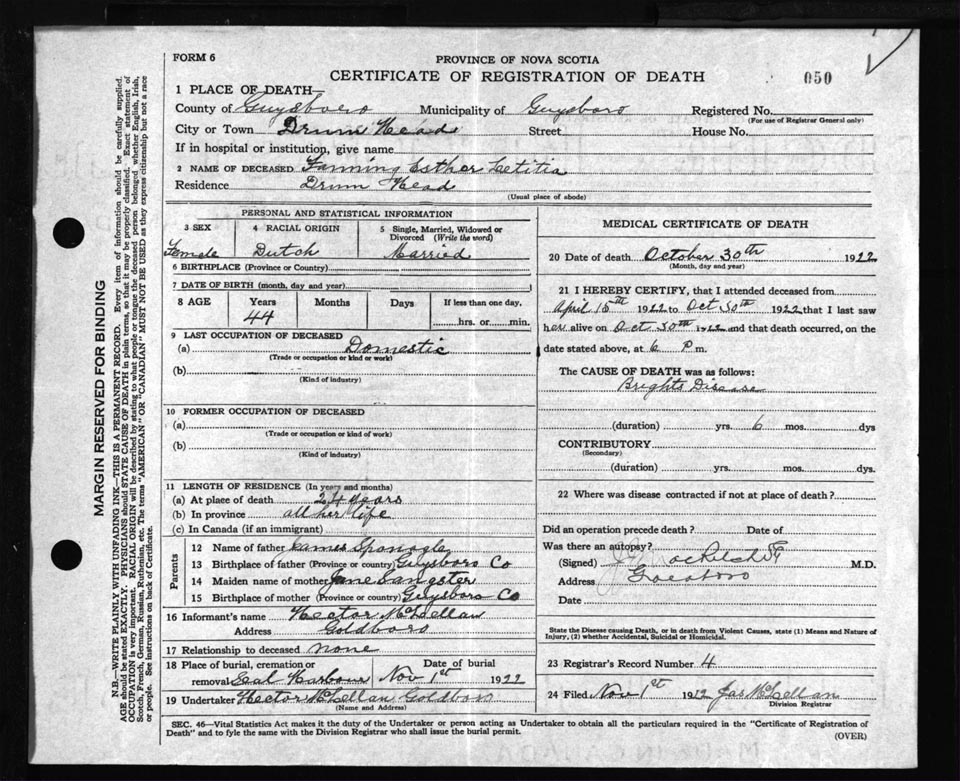 FORM 6
PROVINCE OF NOVA SCOTIA
CERTIFICATE OF REGISTRATION OF DEATH
050
1 PLACE OF DEATH—
County of Guysboro Municipality of Guysboro Registered No.
(For use of Registrar General only)
City or Town Drum Head Street House No.
If in hospital or institution, give name
2 NAME OF DECEASED Fanning Esther Letitia
Residence Drum Head
(Usual place of abode)
PERSONAL AND STATISTICAL INFORMATION
3 SEX 4 RACIAL ORIGIN 5 Single, Married, Widowed or Divorced (Write the word)
Female Dutch Married
6 BIRTHPLACE (Province or Country)
7 DATE OF BIRTH (month, day and year)
8 AGE Years Months Days If less than one day,
44 hrs. or min.
9 LAST OCCUPATION OF DECEASED
(a) Domestic
(Trade or occupation or kind of work)
(b)
(Kind of industry)
10 FORMER OCCUPATION OF DECEASED
(a)
(Trade or occupation or kind of work)
(b)
(Kind of industry)
11 LENGTH OF RESIDENCE (In years and months)
(a) At place of death 24 years
(b) In province all her life
(c) In Canada (if an immigrant)
Parents
12 Name of father James Sponagle
13 Birthplace of father (Province or country) Guysboro Co
14 Maiden name of mother Jane Sangster
15 Birthplace of mother (Province or country) Guysboro Co
16 Informant's name Hector McLellan
Address Goldboro
17 Relationship to deceased none
18 Place of burial, cremation or Date of burial
removal Seal Harbour Nov 1st 1922
19 Undertaker Hector McLellan Goldboro
(Name and Address)
MEDICAL CERTIFICATE OF DEATH
20 Date of death October 30th 1922
(Month, day and year)
21 I HEREBY CERTIFY, that I attended deceased from
April 15th 1922 to Oct 30th 1922 that I last saw
her alive on Oct 30th 1922 and that death occurred, on the
date stated above, at 6 P m.
The CAUSE OF DEATH was as follows:
Brights Disease
(duration) yrs. 6 mos. dys
CONTRIBUTORY
(Secondary)
(duration) yrs. mos. dys.
22 Where was disease contracted if not at place of death?
Did an operation precede death? Date of
Was there an autopsy?
(Signed) M.D.
Address Goldboro
Date
State the Disease causing Death, or in death from Violent Causes, state (1) Means and Nature of
Injury, (2) whether Accidental, Suicidal or Homicidal.
23 Registrar's Record Number 4
24 Filed Nov 1st 1922 Jas McLellan
Division Registrar
SEC. 46—Vital Statistics Act makes it the duty of the Undertaker or person acting as Undertaker to obtain all the particulars required in the "Certificate of Registration of
Death" and to fyle the same with the Division Registrar who shall issue the burial permit.
(OVER)
MARGIN RESERVED FOR BINDING
N.B.—WRITE PLAINLY WITH UNFADING INK—THIS IS A PERMANENT RECORD. Every item of information should be carefully supplied.
AGE should be stated EXACTLY. PHYSICIANS should STATE CAUSE OF DEATH in plain terms, so that it may be properly classified. Exact statement of
OCCUPATION is very important. RACIAL ORIGIN will be described by stating to what people or tongue the deceased person belonged whether English, Irish,
Scotch, French, German, Russian, Ruthenian, etc. The terms "AMERICAN" OR "CANADIAN" MUST NOT BE USED as they express citizenship but not a race
or people. See instructions on back of Certificate.